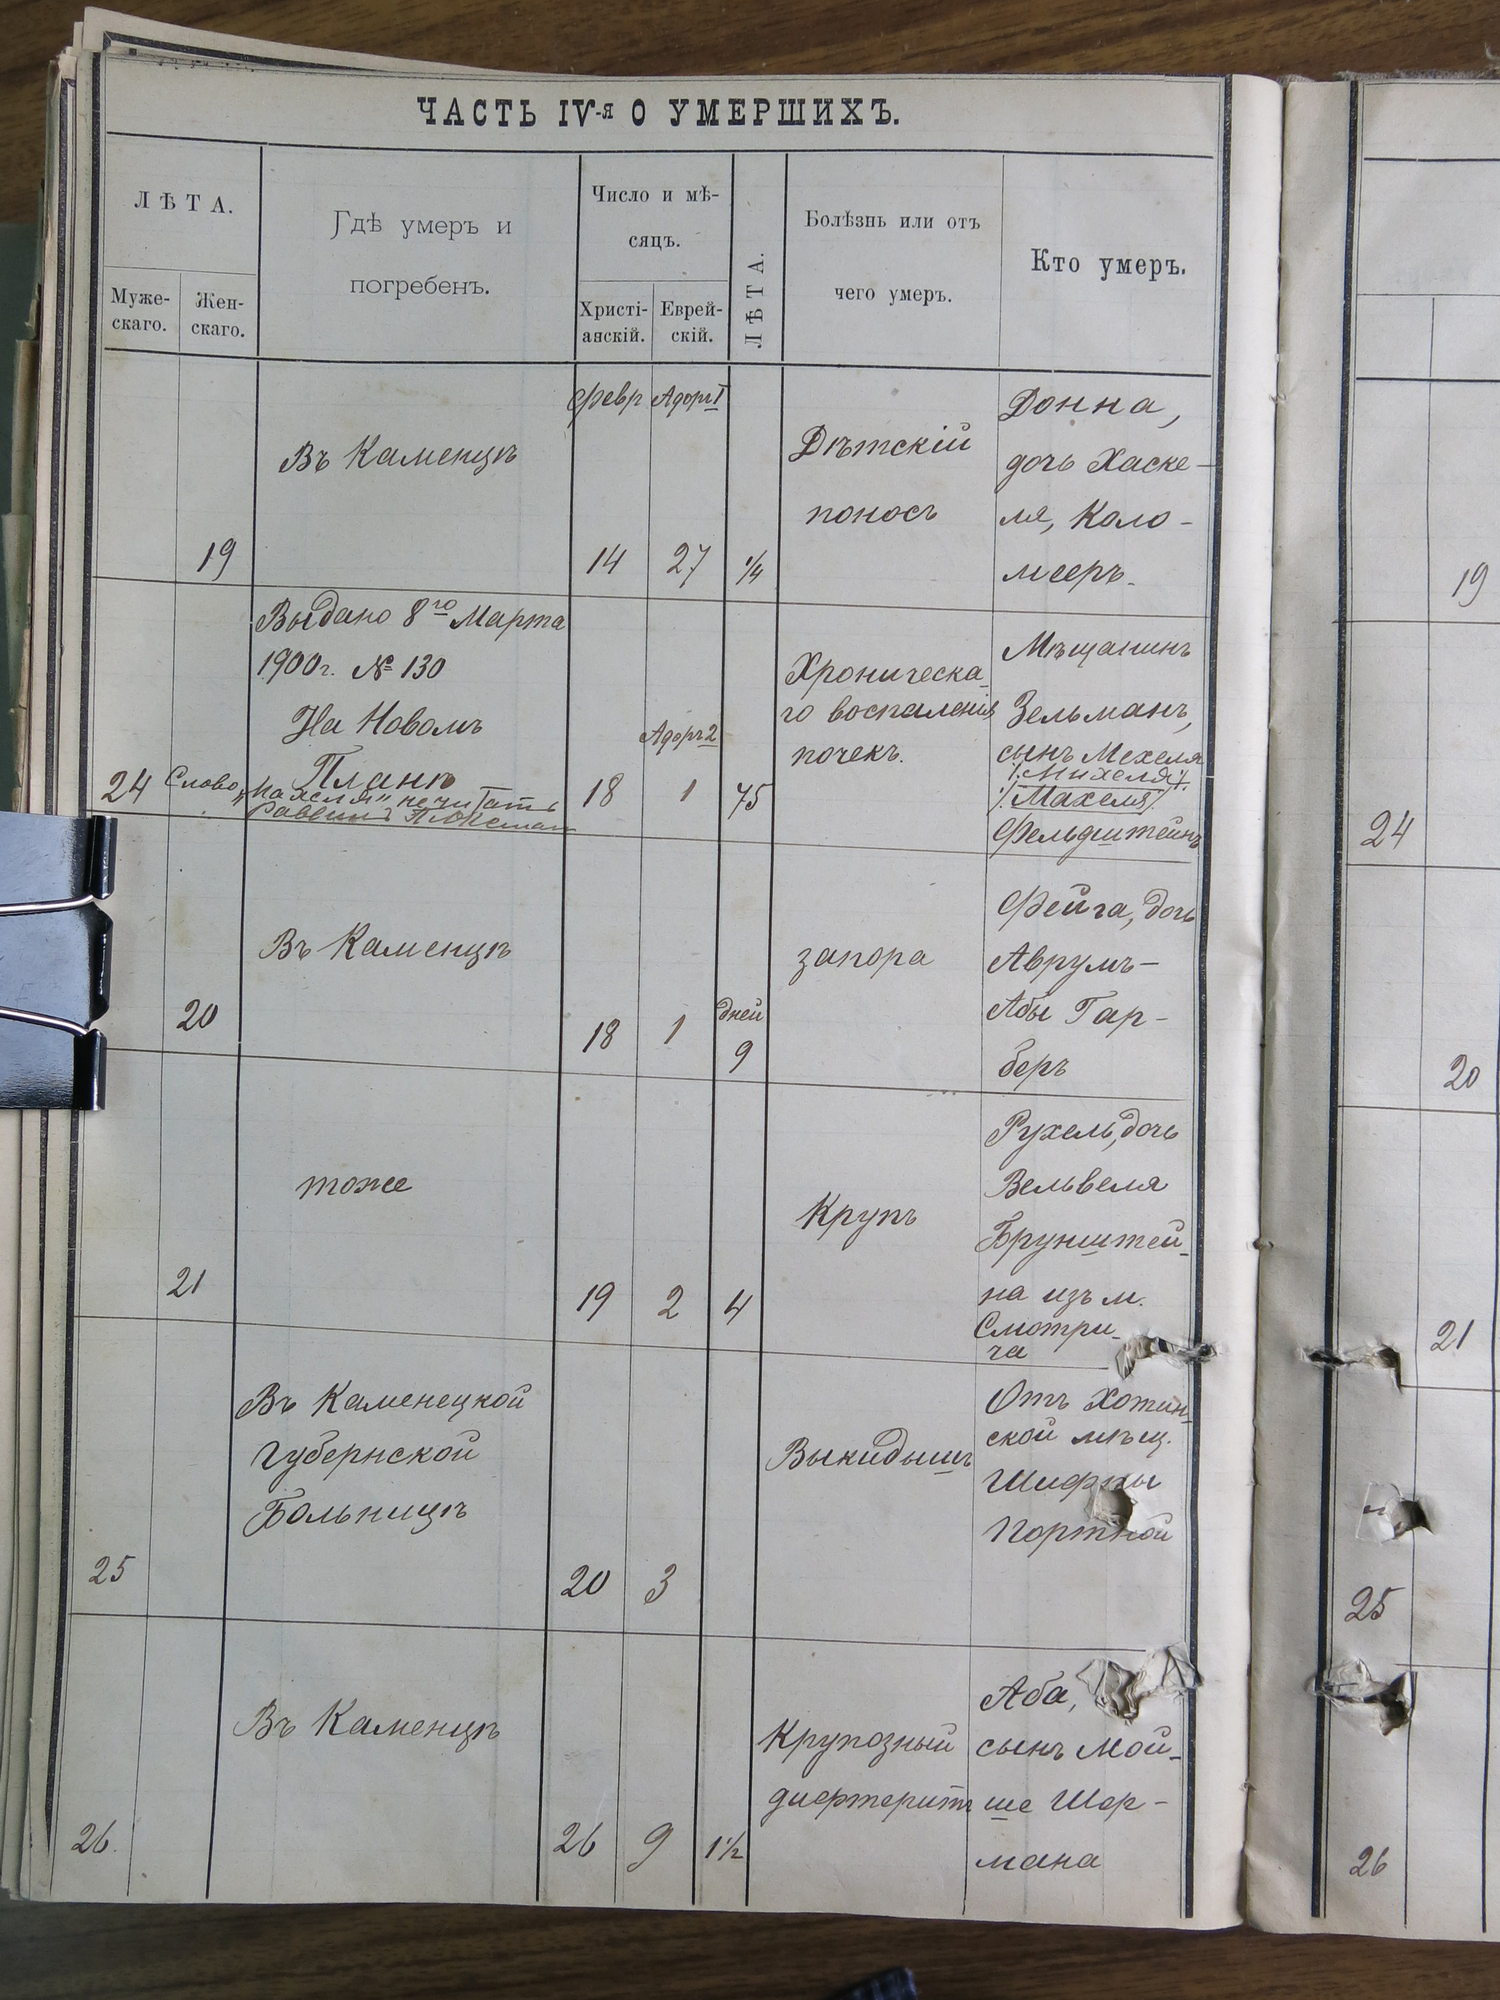 ЧАСТЬ IV-я О УМЕРШИХЪ.
ЛѢТА.
Муже-
скаго.
Жен-
скаго.
Гдѣ умеръ и
погребенъ.
Число и мѣ-
сяцъ.
Христі-
анскій.
Еврей-
скій.
ЛѢТА.
Болѣзнь или отъ
чего умеръ.
Кто умеръ.
19
Въ Каменцѣ
Февр
14
Адоръ I
27
1/4
Дѣтскій
поносъ
Донна,
дочь Хаске-
ля, Коло-
мееръ.
19
24
Выдано 8го Марта
1900г. № 130
На Новомъ
Планѣ
Слово „Махеля" не читать
Раввинъ
18
Адоръ 2
1
75
Хроническа-
го воспаленія
почекъ.
Мѣщанинъ
Зельманъ,
сынъ Мехеля
/:Михеля:/
/Махеля/
Фельдштейнъ
24
20
Въ Каменцѣ
18
1
дней
9
запора
Фейга, дочь
Аврумъ-
Абы Гар-
беръ
20
21
тоже
19
2
4
Крупъ
Рухель, дочь
Вельвеля
Брунштей-
на изъ м.
Смотри-
ча
21
25
Въ Каменецкой
Губернской
Больницѣ
20
3
Выкидышъ
Отъ Хотин-
ской мѣщ.
Шифры
Портной
25
26.
Въ Каменцѣ
26
9
1 1/2
Крупозный
дифтеритъ
Аба,
сынъ Мой-
ше Шер-
мана
26